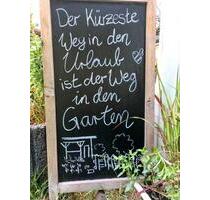 Der Kürzeste
Weg in den
Urlaub
ist der Weg
in den
Garten